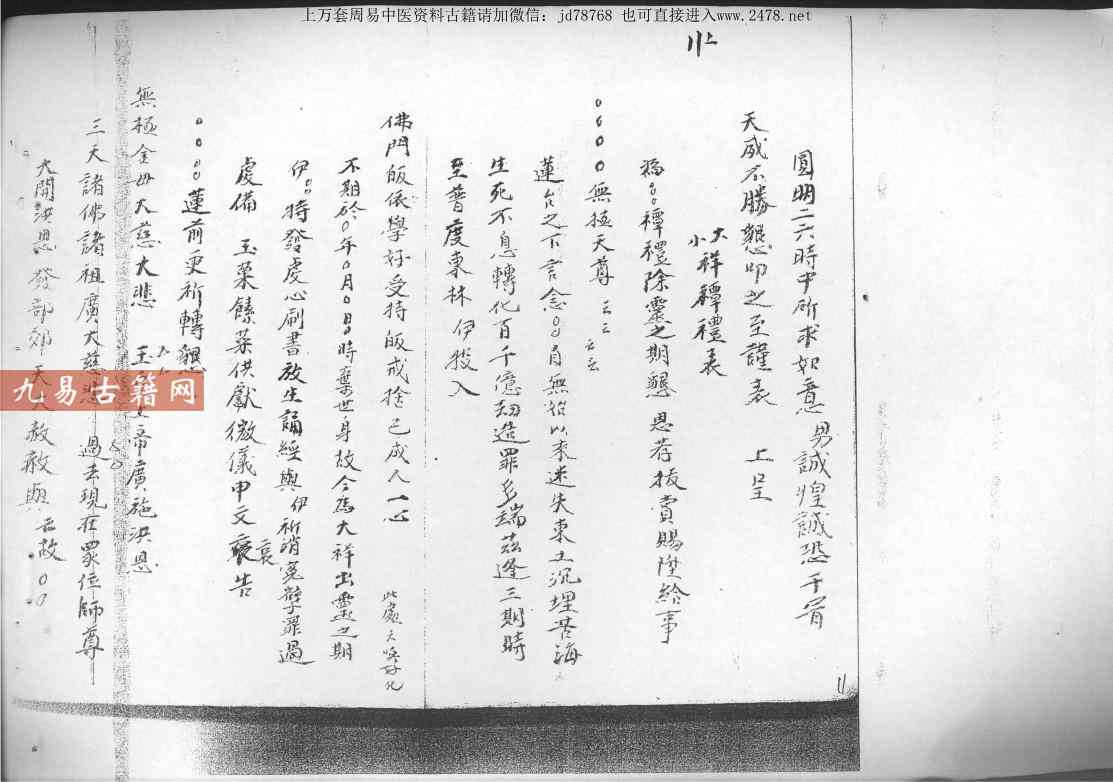 上万套周易中医资料古籍请加微信：jd78768 也可直接进入www.2478.net
上
圓明二六時中所求如意 男誠惶誠恐 千首
天威不勝懇叩之至謹表 上呈
大小祥禫禮表
禫禮除靈之期懇 恩荐拔賞賜陞給事
○○○○無極天尊 云云 云云
蓮台之下言念○○自無始以來迷失東土沉埋苦海
生死不息轉化百千億劫造罪多端茲逢三期時
至普度東林 伊投入
佛門皈依學好受持皈戒捨己成人一心
不期於○年○月○日○時棄世身故今爲大祥出靈之期
伊○○特發虔心刷書放生誦經與 伊祈消冤孽罪過
虔備 玉菓饈菜供獻微儀申文哀告
○○○○蓮前更祈轉懇
無極金母大慈大悲 玉帝廣施洪恩
三天諸佛諸祖廣大慈悲 過去現在眾位師尊
大開洪恩 發部郊天大赦赦與 亡故○○
九易古籍网
11